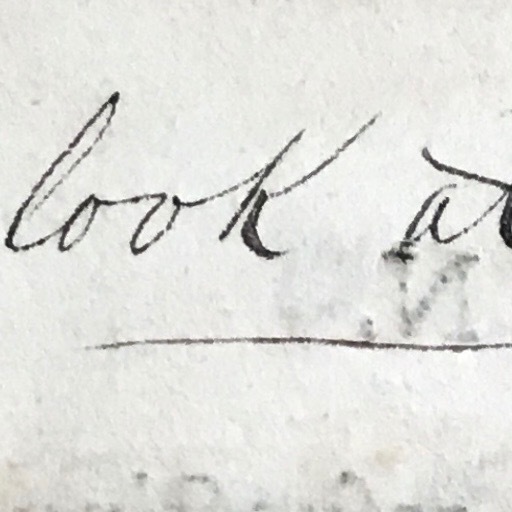 look at